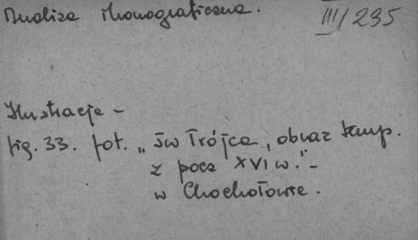 Analiza ikonograficzna.
III/235
Ilustracje –
fig. 33. fot. „Św Trójca, obraz temp.
z pocz XVI w." –
w Chochołowie.